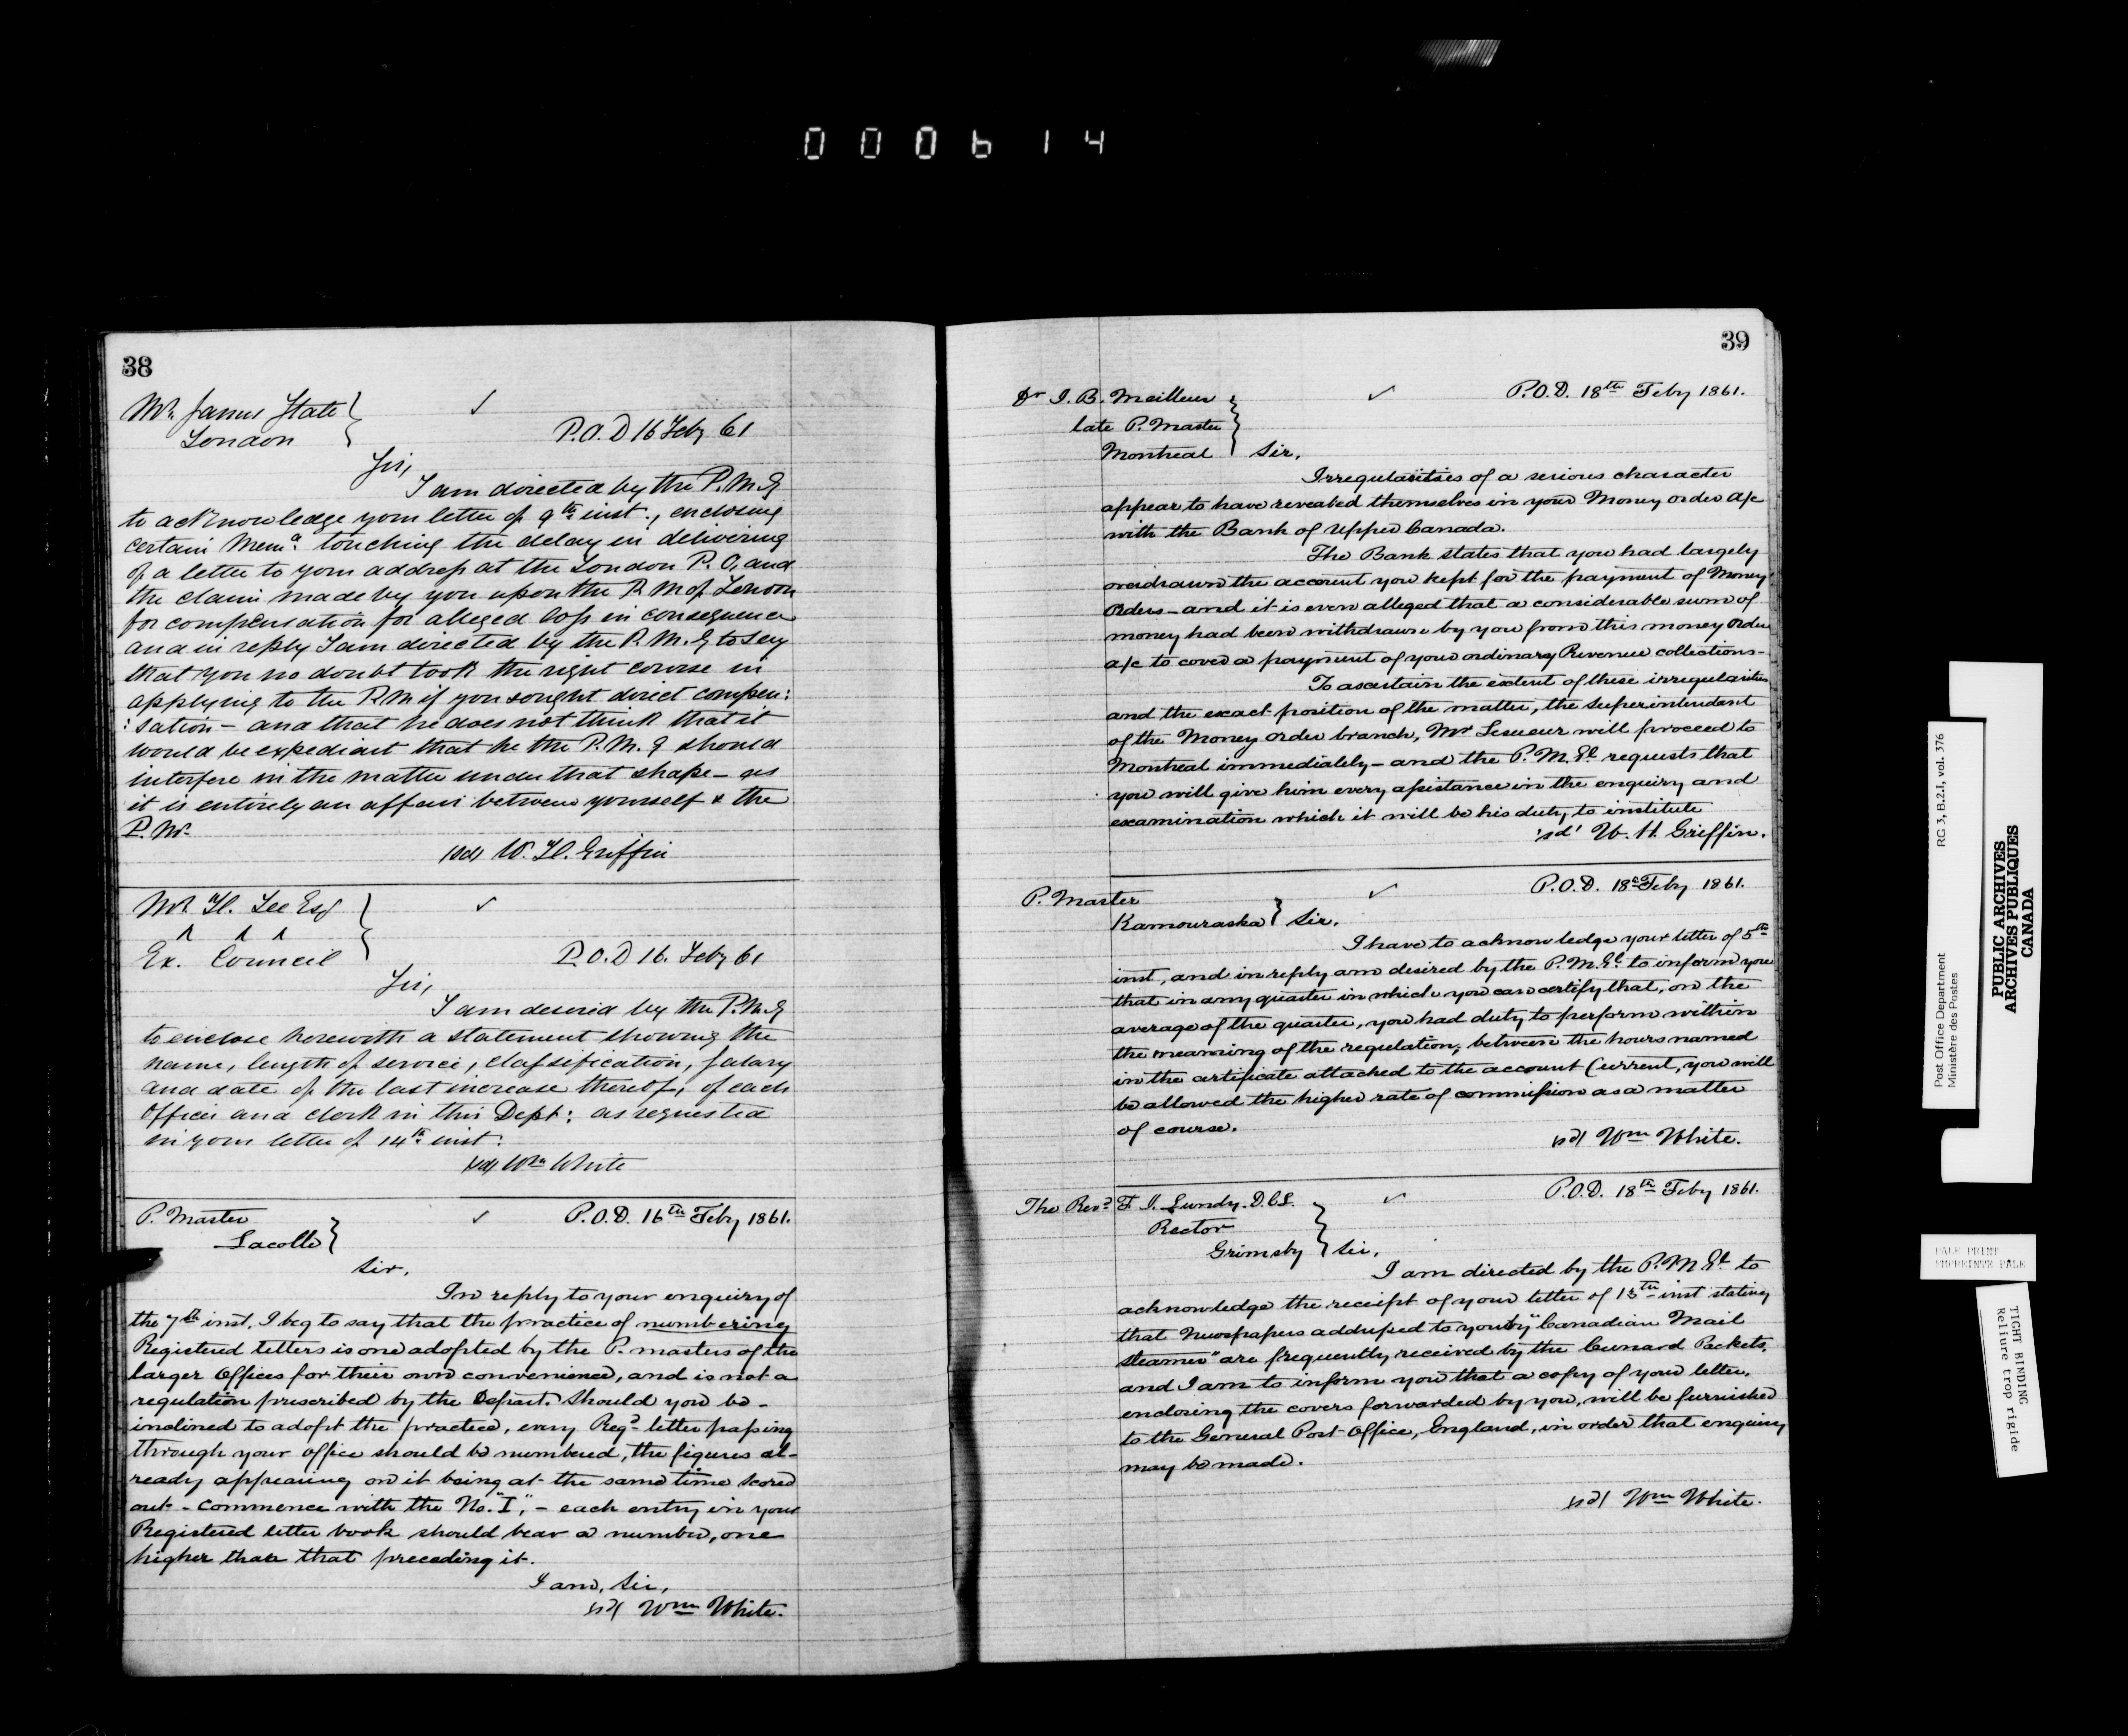 000614
38
Mr. James State
London
P.O.D 16 Feby 61
Sir,
I am directed by the P.M.G
to acknowledge your letter of 9th inst., enclosing
certain Mema. touching the delay in delivering
of a letter to your address at the London P.O, and
the claim made by you upon the P.M of London
for compensation for alleged loss in consequence
and in reply I am directed by the P.M.G to say
that you no doubt took the right course in
applying to the P.M if you sought direct compen:
:sation – and that he does not think that it
would be expedient that he the P.M.G should
interfere in the matter under that shape – as
it is entirely an affair between yourself & the
P.M.
sd/ W.H. Griffin
Mr. H. Lee Esq
Ex. Council
P.O.D 16. Feby 61
Sir,
I am desired by the P.M.G
to enclose herewith a statement showing the
name, length of service, classification, salary
and date of the last increase thereof, of each
Officer and clerk in this Dept: as requested
in your letter of 14th inst:
sd/ Wm White
P. Master
Lacolle
P.O.D. 16th Feby 1861.
Sir,
In reply to your enquiry of
the 7th inst. I beg to say that the practice of numbering
Registered letters is one adopted by the P. masters of the
larger Offices for their own convenience, and is not a
regulation prescribed by the Depart. Should you be-
inclined to adopt the practice, every Regd letter passing
through your office should be numbered, the figures al-
ready appearing on it being at the same time scored
out - Commence with the No. "I", - each entry in your
Registered letter book should bear a number, one
higher than that preceding it.
I am, Sir,
sd/ Wm White.
39
Dr J. B. Meilleur
late P. Master
Montreal
P.O.D. 18th Feby 1861.
Sir,
Irregularities of a serious character
appear to have revealed themselves in your Money order a/c
with the Bank of Upper Canada.
The Bank states that you had largely
overdrawn the account you kept for the payment of Money
Orders – and it is even alleged that a considerable sum of
money had been withdrawn by you from this money Order
a/c to cover a payment of your ordinary Revenue collections –
To ascertain the extent of these irregularities
and the exact position of the matter, the Superintendent
of the Money order branch, Mr Lesueur will proceed to
Montreal immediately – and the P.M.Gl. requests that
you will give him every assistance in the enquiry and
examination which it will be his duty to institute
'sd' W. H. Griffin.
P. Master
Kamouraska
P.O.D. 18th Feby 1861.
Sir.
I have to acknowledge your letter of 5th
inst, and in reply am desired by the P.M.Gl. to inform you
that in any quarter in which you can certify that, on the
average of the quarter, you had duty to perform within
the meaning of the regulation, between the hours named
in the certificate attached to the account Current, you will
be allowed the higher rate of commission as a matter
of course.
sd/ Wm White.
The Revd F. J. Lundy. D.C.L.
Rector
Grimsby
P.O.D. 18th Feby 1861.
Sir,
I am directed by the P.M.Gl to
acknowledge the receipt of your letter of 13th inst stating
that Newspapers addressed to you by "Canadian Mail
Steamer" are frequently received by the Cunard Packets,
and I am to inform you that a copy of your letter,
enclosing the covers forwarded by you, will be furnished
to the General Post Office, England, in order that enquiry
may be made.
sd/ Wm White.
Post Office Department
Ministère des Postes
RG 3, B.2.I, vol. 376
PUBLIC ARCHIVES
ARCHIVES PUBLIQUES
CANADA
PALE PRINT
EMPREINTE PALE
TIGHT BINDING
Reliure trop rigide